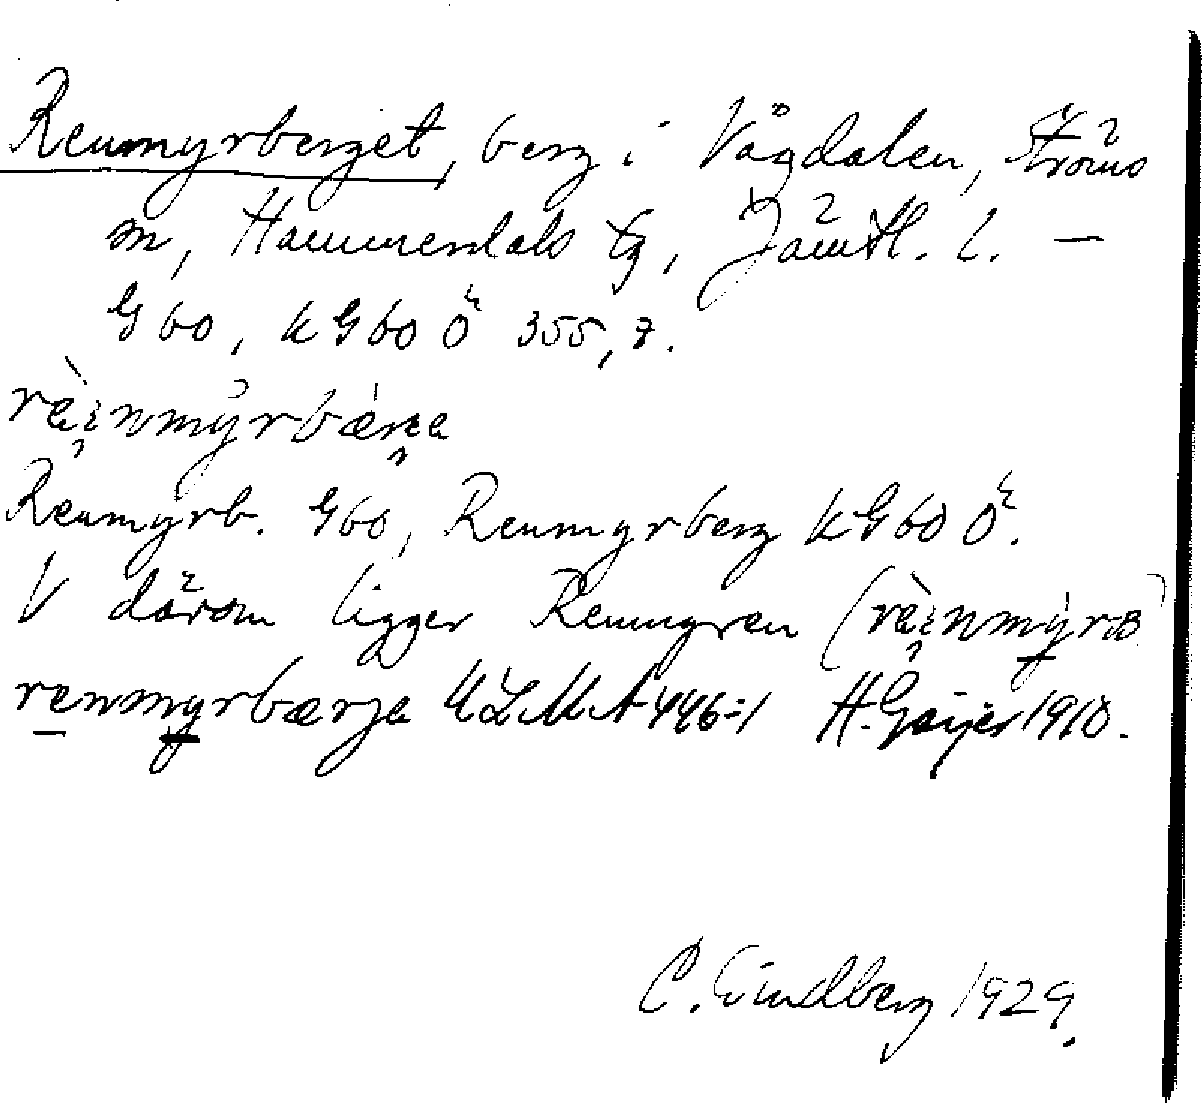 Renmyrberget, berg i Vågdalen, Ströms
sn, Hammerdals tg, Jämtl. l. —
G 60, kG 60 Ö 355, 7.
rὲi̯nmy̆rbær̯a
Renmyrb. G60, Renmyrberg kG 60 Ö.
V därom ligger Renmyren (rὲi̯nmỳra)
renmyrbærja ULMA 446:1 H. Geijer 1910.
C. Lindberg 1929.